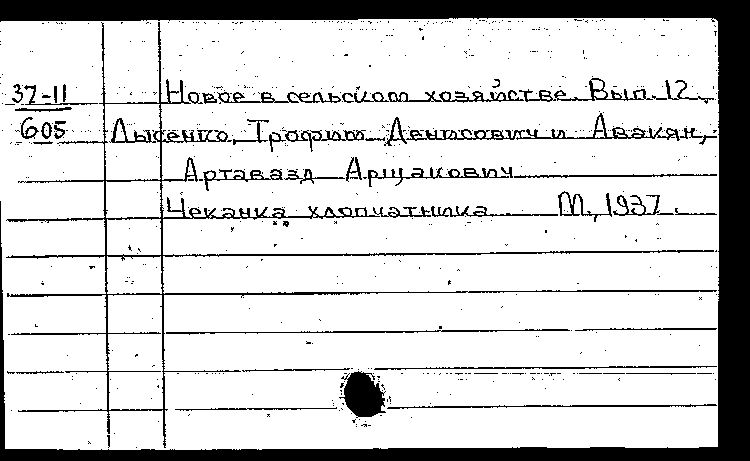 37-11 Новое в сельском хозяйстве. Вып. 12.
605 Лысенко, Трофим Денисович и Авакян,
Артавазд Аршакович
Чеканка хлопчатника М., 1937.